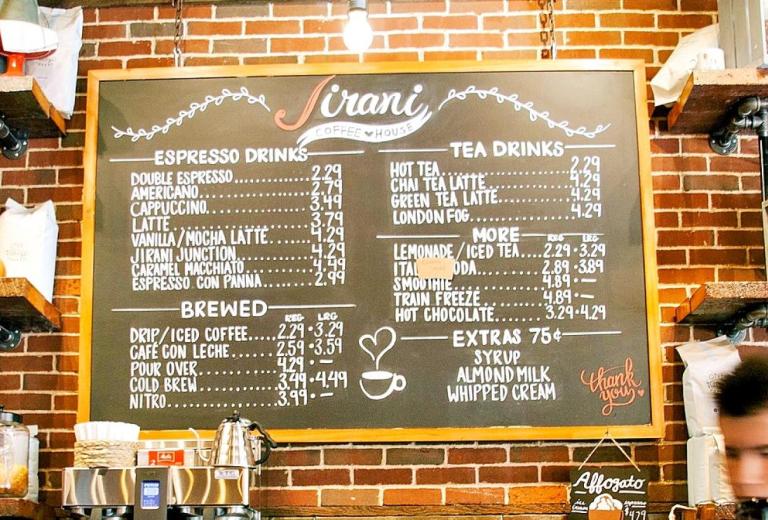 Jirani
COFFEE HOUSE
ESPRESSO DRINKS
DOUBLE ESPRESSO 2.29
AMERICANO 2.79
CAPPUCCINO 3.49
LATTE 3.79
VANILLA/MOCHA LATTE 4.29
JIRANI JUNCTION 4.29
CARAMEL MACCHIATO 4.49
ESPRESSO CON PANNA 2.99
BREWED
REG LRG
DRIP/ICED COFFEE 2.29 · 3.29
CAFÉ CON LECHE 2.59 · 3.59
POUR OVER 4.29 · —
COLD BREW 3.49 · 4.49
NITRO 3.99 · —
TEA DRINKS
HOT TEA 2.29
CHAI TEA LATTE 4.29
GREEN TEA LATTE 4.29
LONDON FOG 4.29
MORE
REG LRG
LEMONADE/ICED TEA 2.29 · 3.29
2.89 · 3.89
SMOOTHIE 4.89 · —
TRAIN FREEZE 4.89 · —
HOT CHOCOLATE 3.29 · 4.29
EXTRAS 75¢
SYRUP
ALMOND MILK
WHIPPED CREAM
thank you
Affogato
espresso
$4.79